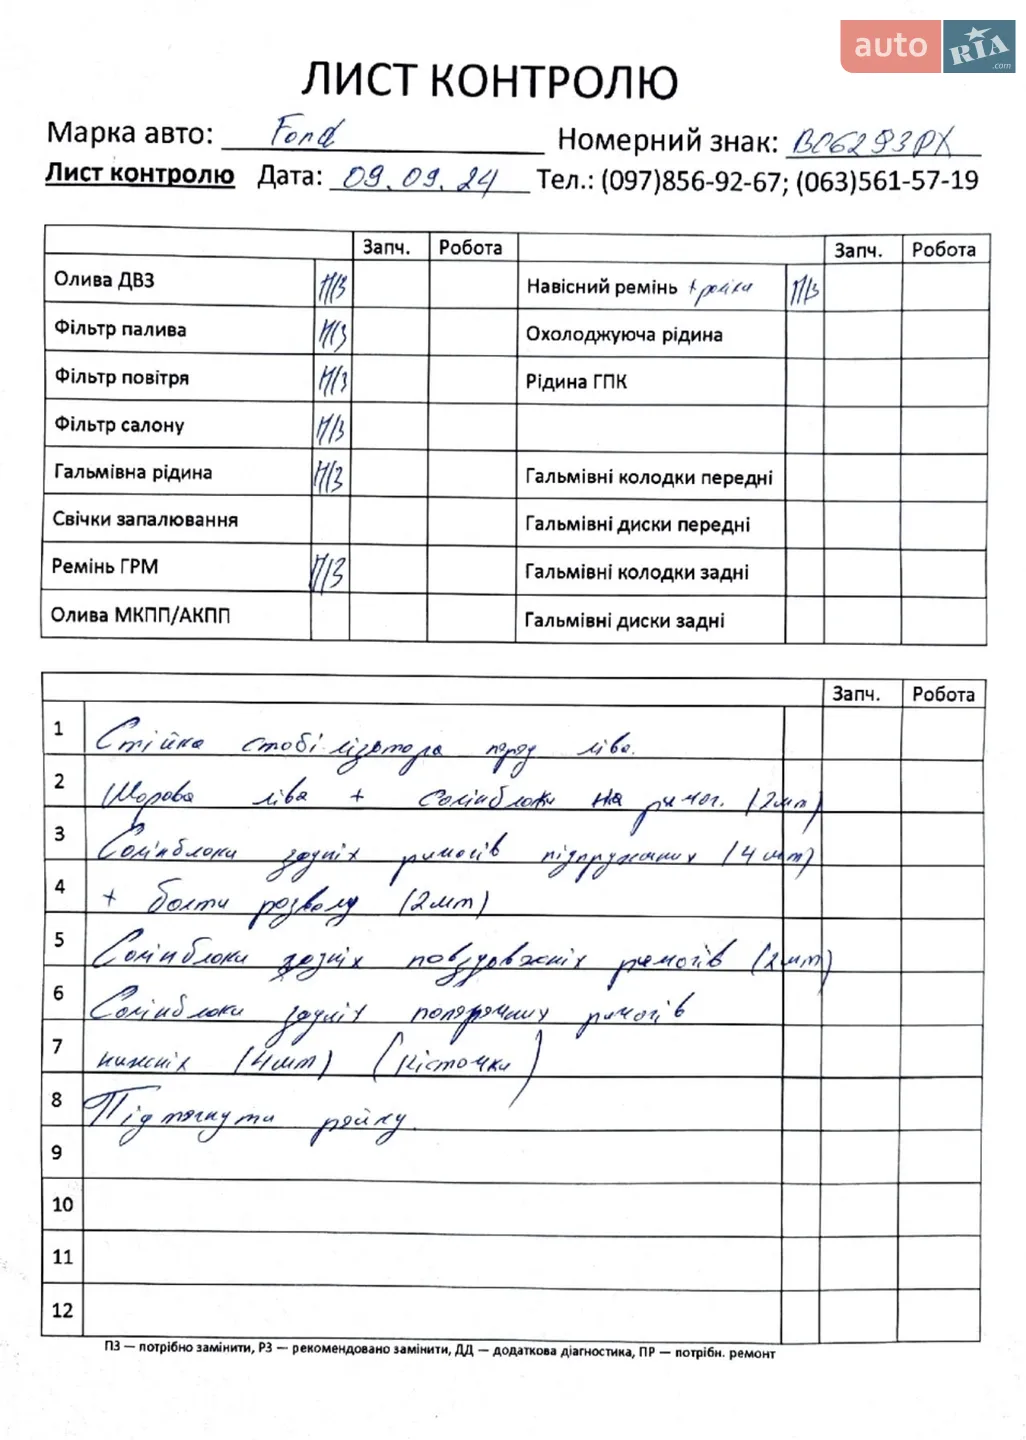 auto RIA .com
ЛИСТ КОНТРОЛЮ
Марка авто: Ford Номерний знак: BC6293PX
Лист контролю Дата: 09.09.24 Тел.: (097)856-92-67; (063)561-57-19
Запч. Робота Запч. Робота
Олива ДВЗ П/З Навісний ремінь + роліки П/З
Фільтр палива П/З Охолоджуюча рідина
Фільтр повітря П/З Рідина ГПК
Фільтр салону П/З
Гальмівна рідина П/З Гальмівні колодки передні
Свічки запалювання Гальмівні диски передні
Ремінь ГРМ П/З Гальмівні колодки задні
Олива МКПП/АКПП Гальмівні диски задні
Запч. Робота
1 Стійка стабілізатора перед ліва.
2 Шарова ліва + сайлінблоки на ричаг. (2шт)
3 Сайлінблоки задніх ричагів підпружинних (4шт)
4 + болти розвалу (2шт)
5 Сайлінблоки задніх повздовжніх ричагів (2шт)
6 Сайлінблоки задніх поперечних ричагів
7 нижніх (4шт) (Кісточки)
8 Підтягнути рейку.
9
10
11
12
ПЗ — потрібно замінити, РЗ — рекомендовано замінити, ДД — додаткова діагностика, ПР — потрібн. ремонт